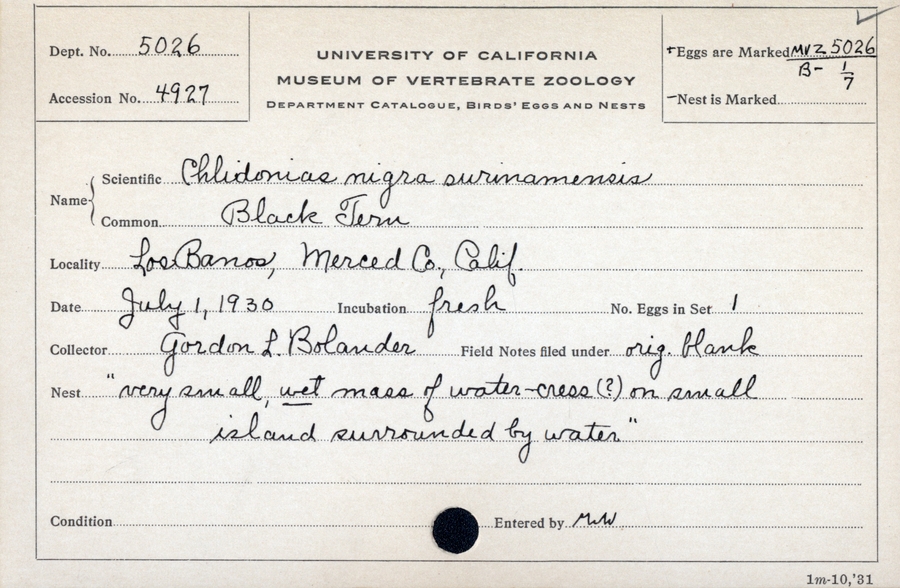 Dept. No. 5026
Accession No. 4927
UNIVERSITY OF CALIFORNIA
MUSEUM OF VERTEBRATE ZOOLOGY
DEPARTMENT CATALOGUE, BIRDS' EGGS AND NESTS
+Eggs are Marked MVZ 5026
B- 1/7
-Nest is Marked
Name { Scientific Chlidonias nigra surinamensis
Common Black Tern
Locality Los Banos, Merced Co., Calif.
Date July 1, 1930 Incubation fresh No. Eggs in Set 1
Collector Gordon L. Bolander Field Notes filed under orig. blank
Nest "very small, wet mass of water-cress (?) on small
island surrounded by water"
Condition Entered by
1m-10,'31